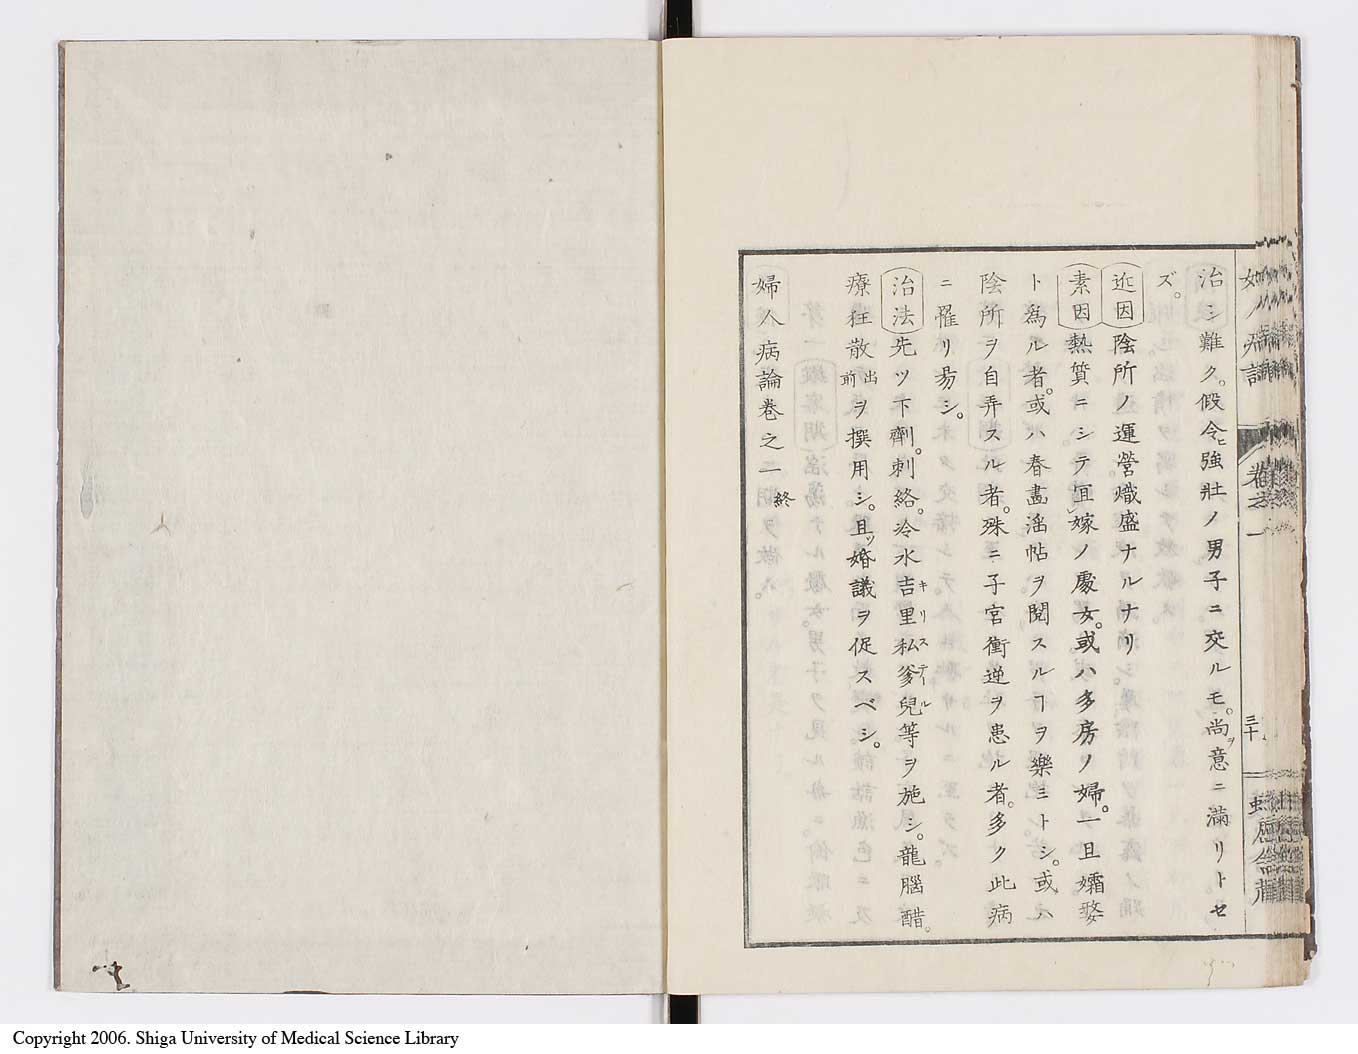 治シ難ク。假令ヒ強壯ノ男子ニ交ルモ。尚ヲ意ニ滿リトセ
ズ。
近因陰所ノ運營熾盛ナルナリ
素因熱質ニシテ宜嫁ノ處女。或ハ多房ノ婦。一旦孀嫠
ト為ル者。或ハ春畵淫帖ヲ閲スルヿヲ樂ミトシ。或ハ
陰所ヲ自弄スル者。殊ニ子宮衝逆ヲ患ル者。多ク此病
ニ罹リ昜シ。
治法先ツ下劑。刺絡。冷水吉里私爹兒キリステイル等ヲ施シ。龍腦醋。
療狂散出前ヲ撰用シ。且ツ婚議ヲ促スベシ。
婦人病論卷之一終
婦人病論
卷之一
三十
Copyright 2006. Shiga University of Medical Science Library